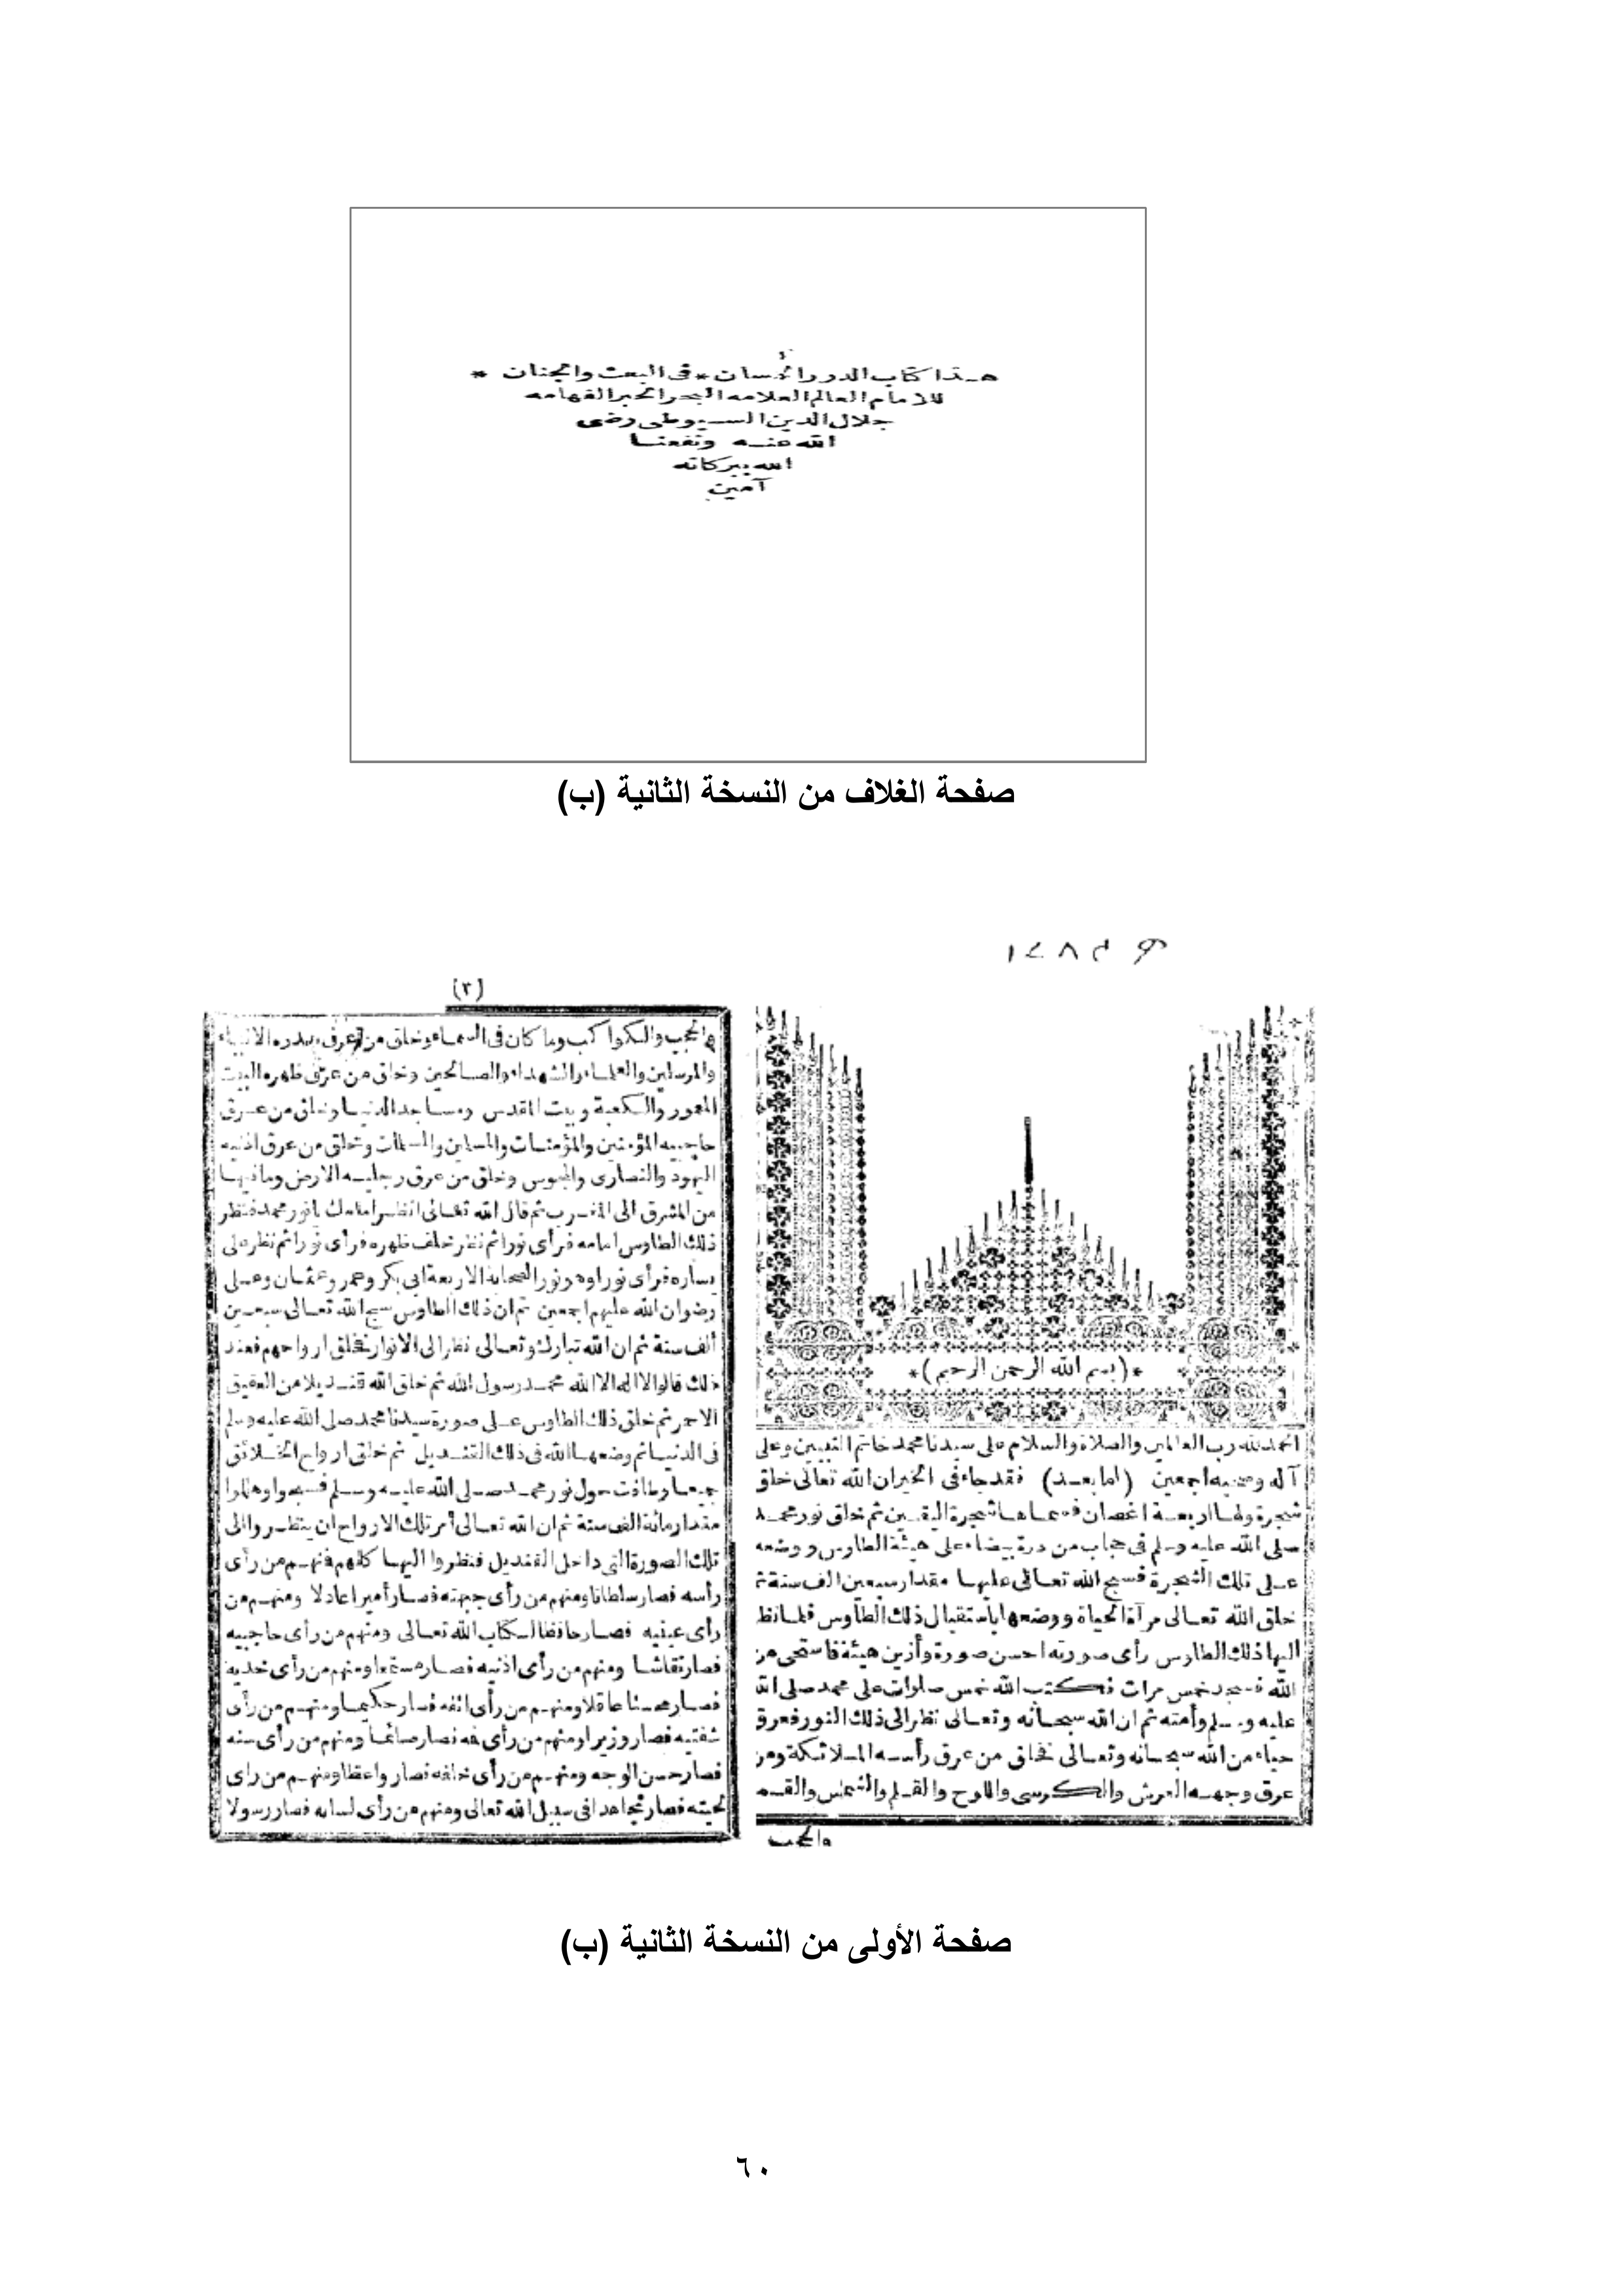 هذا كتاب الدرر الحسان * فى البعث والجنان *
للامام العالم العلامه البحر الحبر الفهامه
جلال الدين السيوطى رضى
الله عنه ونفعنا
الله ببركاته
آمين
صفحة الغلاف من النسخة الثانية (ب)
*(بسم الله الرحمن الرحيم)*
الحمد لله رب العالمين والصلاة والسلام على سيدنا محمد خاتم النبيين وعلى
آله وصحبه اجمعين (اما بعد) فقد جاء فى الخبر ان الله تعالى خلق
شجرة ولها اربعة اغصان فسماها شجرة اليقين ثم خلق نور محمد
صلى الله عليه وسلم فى حجاب من درة بيضاء على هيئة الطاوس ووضعه
على تلك الشجرة فسبح الله تعالى عليها مقدار سبعين الف سنة ثم
خلق الله تعالى مرآة الحياة ووضعها باستقبال ذلك الطاوس فلما نظر
اليها ذلك الطاوس رأى صورته احسن صورة وأزين هيئة فاستحى من
الله فسجد خمس مرات فكتب الله خمس صلوات على محمد صلى الله
عليه وسلم وأمته ثم ان الله سبحانه وتعالى نظر الى ذلك النور فعرق
حياء من الله سبحانه وتعالى فخلق من عرق رأسه الملائكة ومن
عرق وجهه العرش والكرسى واللوح والقلم والشمس والقمر
والحجب
(٣)
والحجب والكواكب وما كان فى السماء وخلق من عرق صدره الانبياء
والمرسلين والعلماء والشهداء والصالحين وخلق من عرق ظهره البيت
المعمور والكعبة وبيت المقدس ومساجد الدنيا وخلق من عرق
حاجبيه المؤمنين والمؤمنات والمسلمين والمسلمات وخلق من عرق اذنيه
اليهود والنصارى والمجوس وخلق من عرق رجليه الارض وما فيها
من المشرق الى المغرب ثم قال الله تعالى انظر امامك يا نور محمد فنظر
ذلك الطاوس امامه فرأى نورا ثم نظر خلف ظهره فرأى نورا ثم نظر على
يساره فرأى نورا وهو نور الصحابة الاربعة ابى بكر وعمر وعثمان وعلى
رضوان الله عليهم اجمعين ثم ان ذلك الطاوس سبح الله تعالى سبعين
ألف سنة ثم ان الله تبارك وتعالى نظر الى الانوار فخلق ارواحهم فعند
ذلك قالوا لا اله الا الله محمد رسول الله ثم خلق الله قنديلا من العقيق
الاحمر ثم خلق ذلك الطاوس على صورة سيدنا محمد صلى الله عليه وسلم
فى الدنيا ثم وضعها الله فى ذلك القنديل ثم خلق ارواح الخلائق
جميعا وطافت حول نور محمد صلى الله عليه وسلم فسبحوا وهللوا
مقدار مائة الف سنة ثم ان الله تعالى أمر تلك الارواح ان ينظروا الى
تلك الصورة التى داخل القنديل فنظروا اليها كلهم فمنهم من رأى
رأسه فصار سلطانا ومنهم من رأى جبهته فصار أميرا عادلا ومنهم من
رأى عينيه فصار حافظا لكتاب الله تعالى ومنهم من رأى حاجبيه
فصار نقاشا ومنهم من رأى اذنيه فصار مستمعا ومنهم من رأى خديه
فصار محسنا عاقلا ومنهم من رأى انفه فصار حكيما ومنهم من رأى
شفتيه فصار وزيرا ومنهم من رأى فمه فصار صائما ومنهم من رأى سنه
فصار حسن الوجه ومنهم من رأى حلقه فصار واعظا ومنهم من رأى
لحيته فصار مجاهدا فى سبيل الله تعالى ومنهم من رأى لسانه فصار رسولا
صفحة الأولى من النسخة الثانية (ب)
٦٠